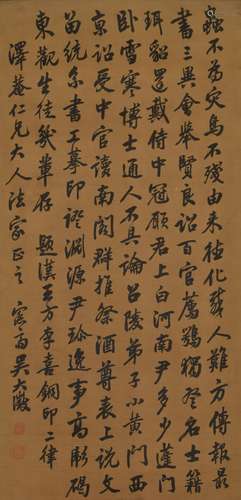 蟲不為灾鳥不殘由来德化感人難方傳報最
書三異會舉賢良詔百官薦鶚獨登名士籍
珥貂還戴侍中冠願君上白河南尹多少蓬門
卧雪寒博士通人不具論召陵弟子小黄門西
京詔受中官讀南閣群推祭酒尊表上說文
留統系書工摹印證淵源尹珍逸事高彪碣
東觀生徒幾輩存 題漢王方李喜銅印二律
澤菴仁兄大人法家正之 愙齋吳大澂